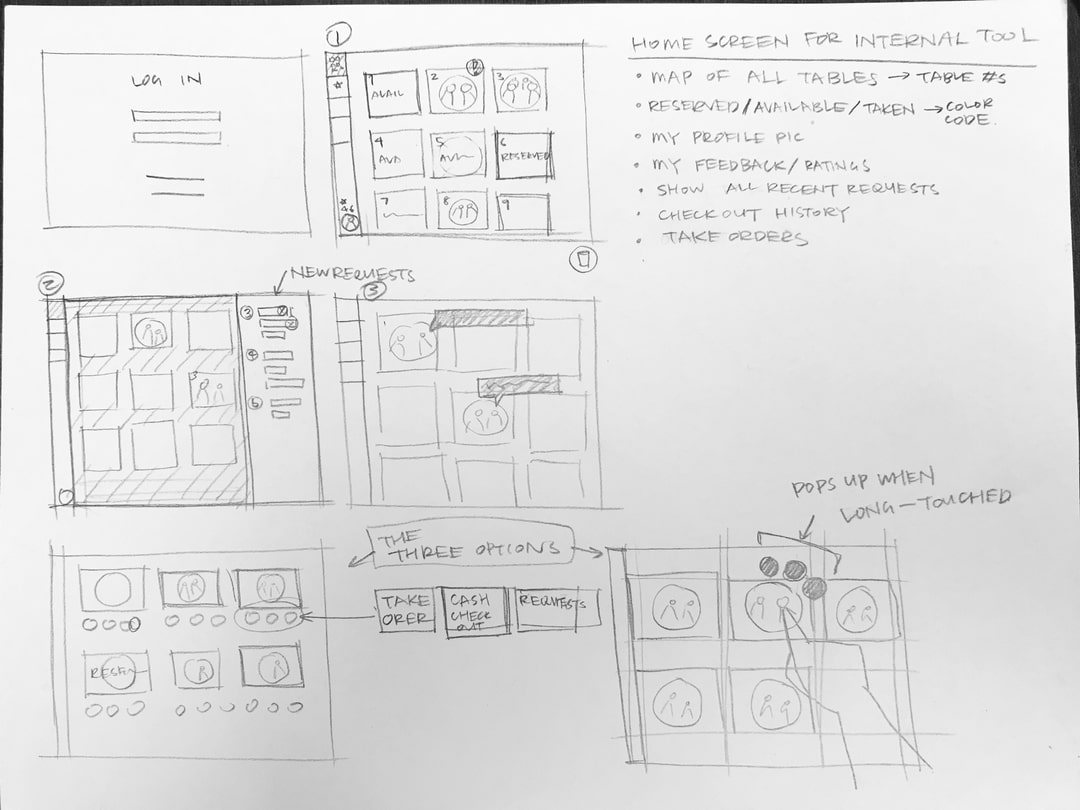 LOG IN
1
1
AVAIL
2
3
4
AVA
5
6
RESERVED
7
8
9
HOME SCREEN FOR INTERNAL TOOL
• MAP OF ALL TABLES → TABLE #S
• RESERVED/AVAILABLE/TAKEN → COLOR
CODE.
• MY PROFILE PIC
• MY FEEDBACK/RATINGS
• SHOW ALL RECENT REQUESTS
• CHECKOUT HISTORY
• TAKE ORDERS
2
NEW REQUESTS
3
3
4
5
3
THE
THREE OPTIONS
TAKE
ORER
CASH
CHECK
OUT
REQUESTS
POPS UP WHEN
LONG-TOUCHED